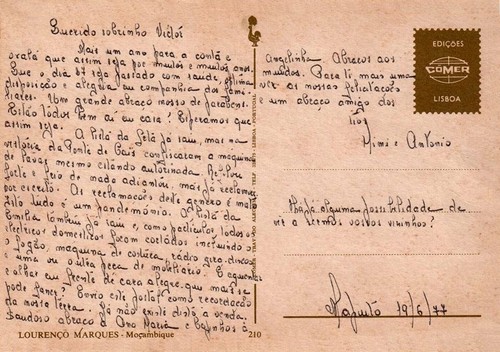 Querido sobrinho Victor
Mais um ano para a conta e
oxalá que assim seja por muitos e muitos anos.
Que o dia 27 seja passado com saude, optima
disposição e alegria em companhia dos fami-
liares. Um grande abraço nosso de parabens.
Estão todos bem aí em casa? Esperamos que
assim seja.
A Pista da Setá já saiu, mas na
vistoria da Ponte de Cais confiscaram a maquina
de lavar mesmo estando autorizada. Refilou
forte e feio de nada adiantou, mas já reclamou
por escrito. As reclamações deste genero é mato
pois tudo é um pandemónio. A Pista da
Emilia também já saiu e, como particular, todos os
electricos domesticos foram cortados incluindo o
fogão, maquina de costura, rádio gira-discos
e uma ou outra peça de mobiliario. E aguentar
e olhar em frente de cara alegre, que mais se
pode fazer? Envio este postal como recordação
da nossa terra. Já não existe disto à venda.
Saudoso abraço à Ana Maria e beijinhos à
LOURENÇO MARQUES - Moçambique 210
Angelinha. Abraços aos
miudos. Para ti mais uma
vez as nossas felicitações
e um abraço amigo dos
tios
Mimi e Antonio
Haja alguma possibilidade de
vir a termos vossos vizinhos?
Maputo 19/6/77
EDIÇÕES
CÓMER
LISBOA